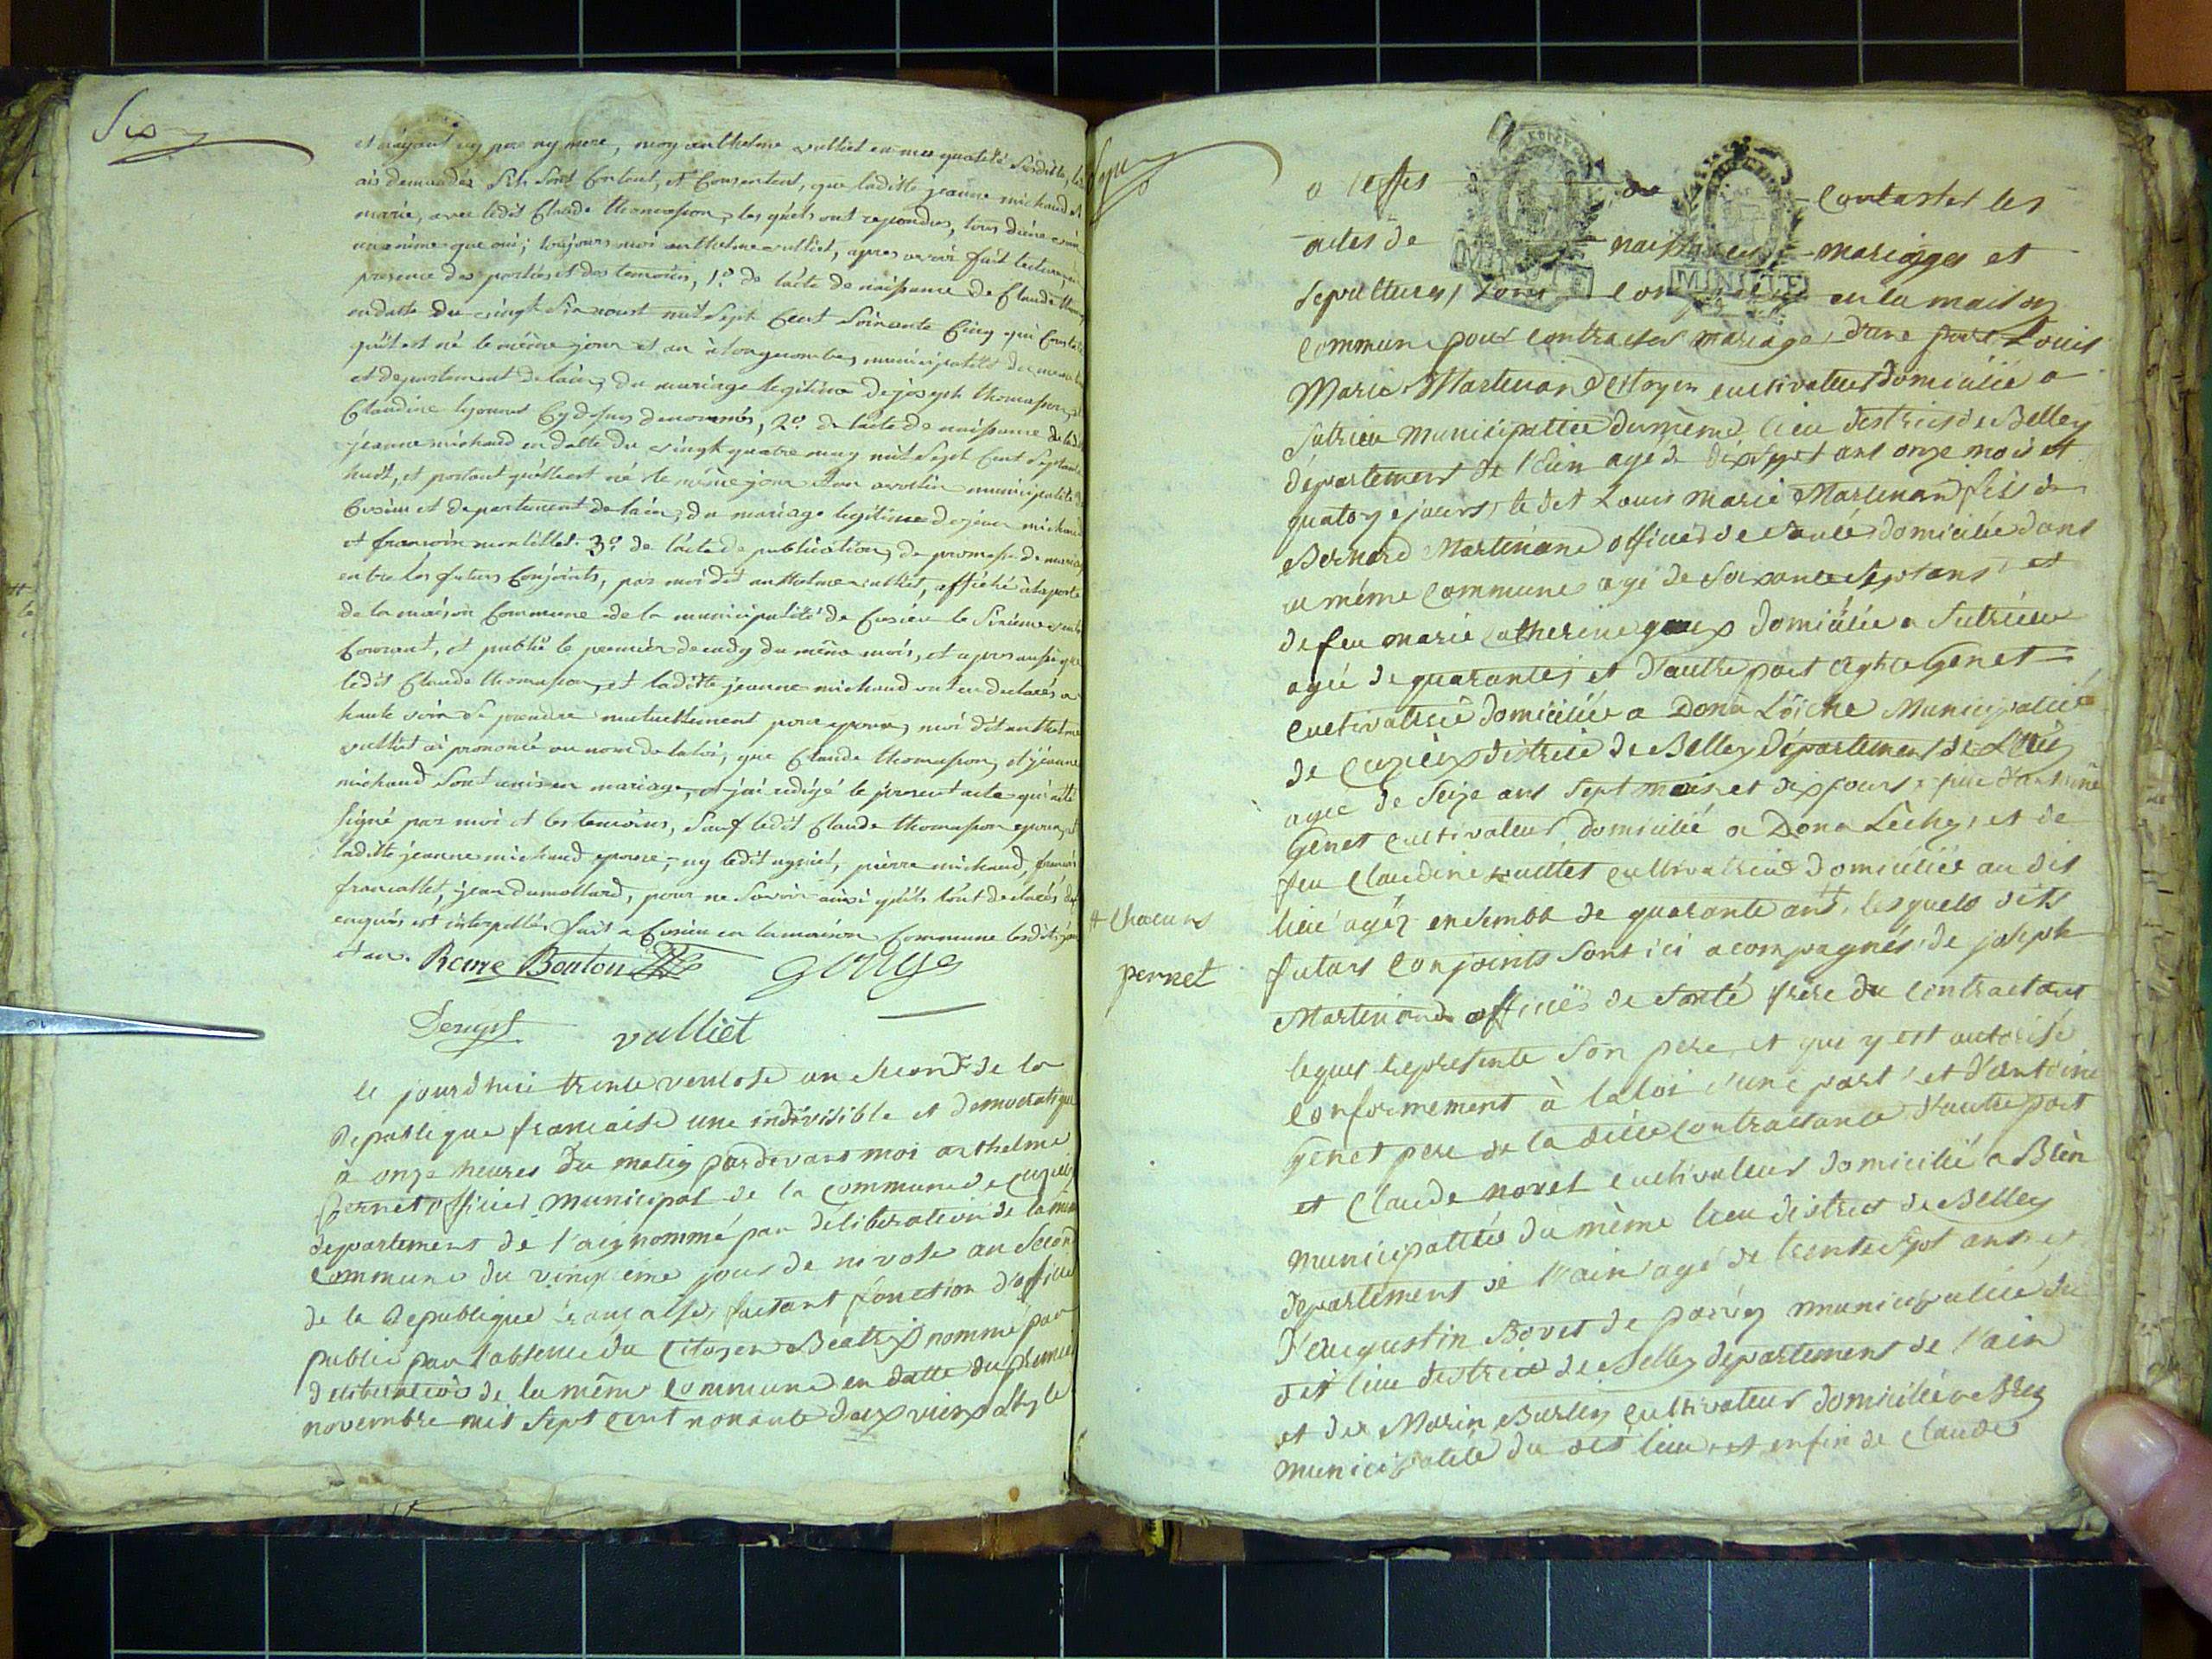 Six
et n'ayant ny pere ny mere, moy anthelme vulliet en ma qualité susditte, les
ais demandés s'ils sont Content, et Consentent, que laditte jeanne michaud se
marie, avec ledit Claude thomasson, les quels ont repondus, tous d'une voix
unanime que oui; toujours moi anthelme vulliet, apres avoir fait lecture, en
presence des parties et des temoins, 1.º de l'acte de naissance de Claude
en datte du vingt Six aoust mil Sept Cent Soixante Cinq qui Constate
qu'il est né le même jour et an à longecombe, municipalité du meme lieu
et departement de lain, du mariage legitime de joseph thomasson, et
Claudine Cy dessus denommés, 2.º de l'acte de naissance de laditte
jeanne michaud en datte du vingt quatre may mil Sept Cent Septante
huit, et portant qu'elle est né le même jour et an municipalité de
Cusieu et departement de lain, du mariage legitime de jean michaud
et françoise montillet. 3.º de l'acte de publication, de promesse de mariage
entre les futurs Conjoints, par moi dit anthelme vulliet, affiché à la porte
de la maison Commune de la municipalité de Cusieu le Sixieme ventose
Courant, et publié le premier decady du même mois, et apres aussi que
ledit Claude thomasson, et laditte jeanne michaud ont eu declarés a
haute voix se prendre mutuellement pour epoux, moi dit anthelme
vulliet ai prononcé au nom de la loi, que Claude thomasson, et jeanne
michaud Sont unis en mariage, et j'ai redigé le present acte qui a été
signé par moi et les temoins, Sauf ledit Claude thomasson epoux, et
laditte jeanne michaud epouse, ny ledit pierre michaud, françois
francallet, jean dumollard, pour ne Savoir ainsi qu'ils l'ont declarés de ce
enquis et interpellés fait a Cusieu en la maison Commune lesdits jour
et an. Reine Bouton
vulliet
le jourd'huit trente ventose an second de la
Republique francaise une indivisible et democratique
à onze heures du matin pardevant moi anthelme
pernet officier municipal de la commune de Cuzieu
departement de l'ain nommé par deliberation de la même
commune du vingtième jour de nivose an second
de la Republique francaise, faisant fonction d'officier
public par l'absence du Citoyen Beatrix nommé par
deliberation de la même commune en datte du premier
novembre mil sept cent nonante deux vieux style
Sept
a l'effet de Contaster les
actes de naissances mariages et
sepultures, sont comparus en la maison
commune pour contracter mariage, d'une part Louis
Marie Martinand Citoyen cultivateur domicilié a
Sutrieu municipalitée du même lieu district de Belley
departement de l'ain agé de dixsept ans onze mois et
quatorze jours, le dit Louis Marie Martinand fils de
Bernard Martinand officier de santé domicilié dans
la même commune agé de soixante sept ans, et
de feu marie catherine domiciliée a Sutrieu
agée de quarante, et d'autre part Genet
cultivatrice domiciliée a Dona Loiche municipalité
de Cuzieu district de Belley département de L'Ain
agée de seize ans sept mois et dix jours, fille d'antoine
Genet cultivateur domicilié a Dona Lêche, et de
feu Claudine vullet cultivatrice domiciliée au dit
lieu agés # ensemble de quarante ans, lesquels dits
# chacuns
pernet
futurs conjoints sont ici acompagnés, de joseph
Martinand officier de santé frère du contractant
lequel represente son pere, et qui y est autorisé
conformement à la loi d'une part, et d'antoine
Genet pere de la ditte contractante d'autre part
et Claude novet cultivateur domicilié a
municipalitée du même lieu district de Belley
departement de l'ain agé de trente sept ans et
d'augustin Bovet de municipalité du
dit lieu district de Belley departement de l'ain
et de Marin Burlen cultivateur domicilié
municipalité du dit lieu, et enfin de Claude
MINUTE
MINUTE